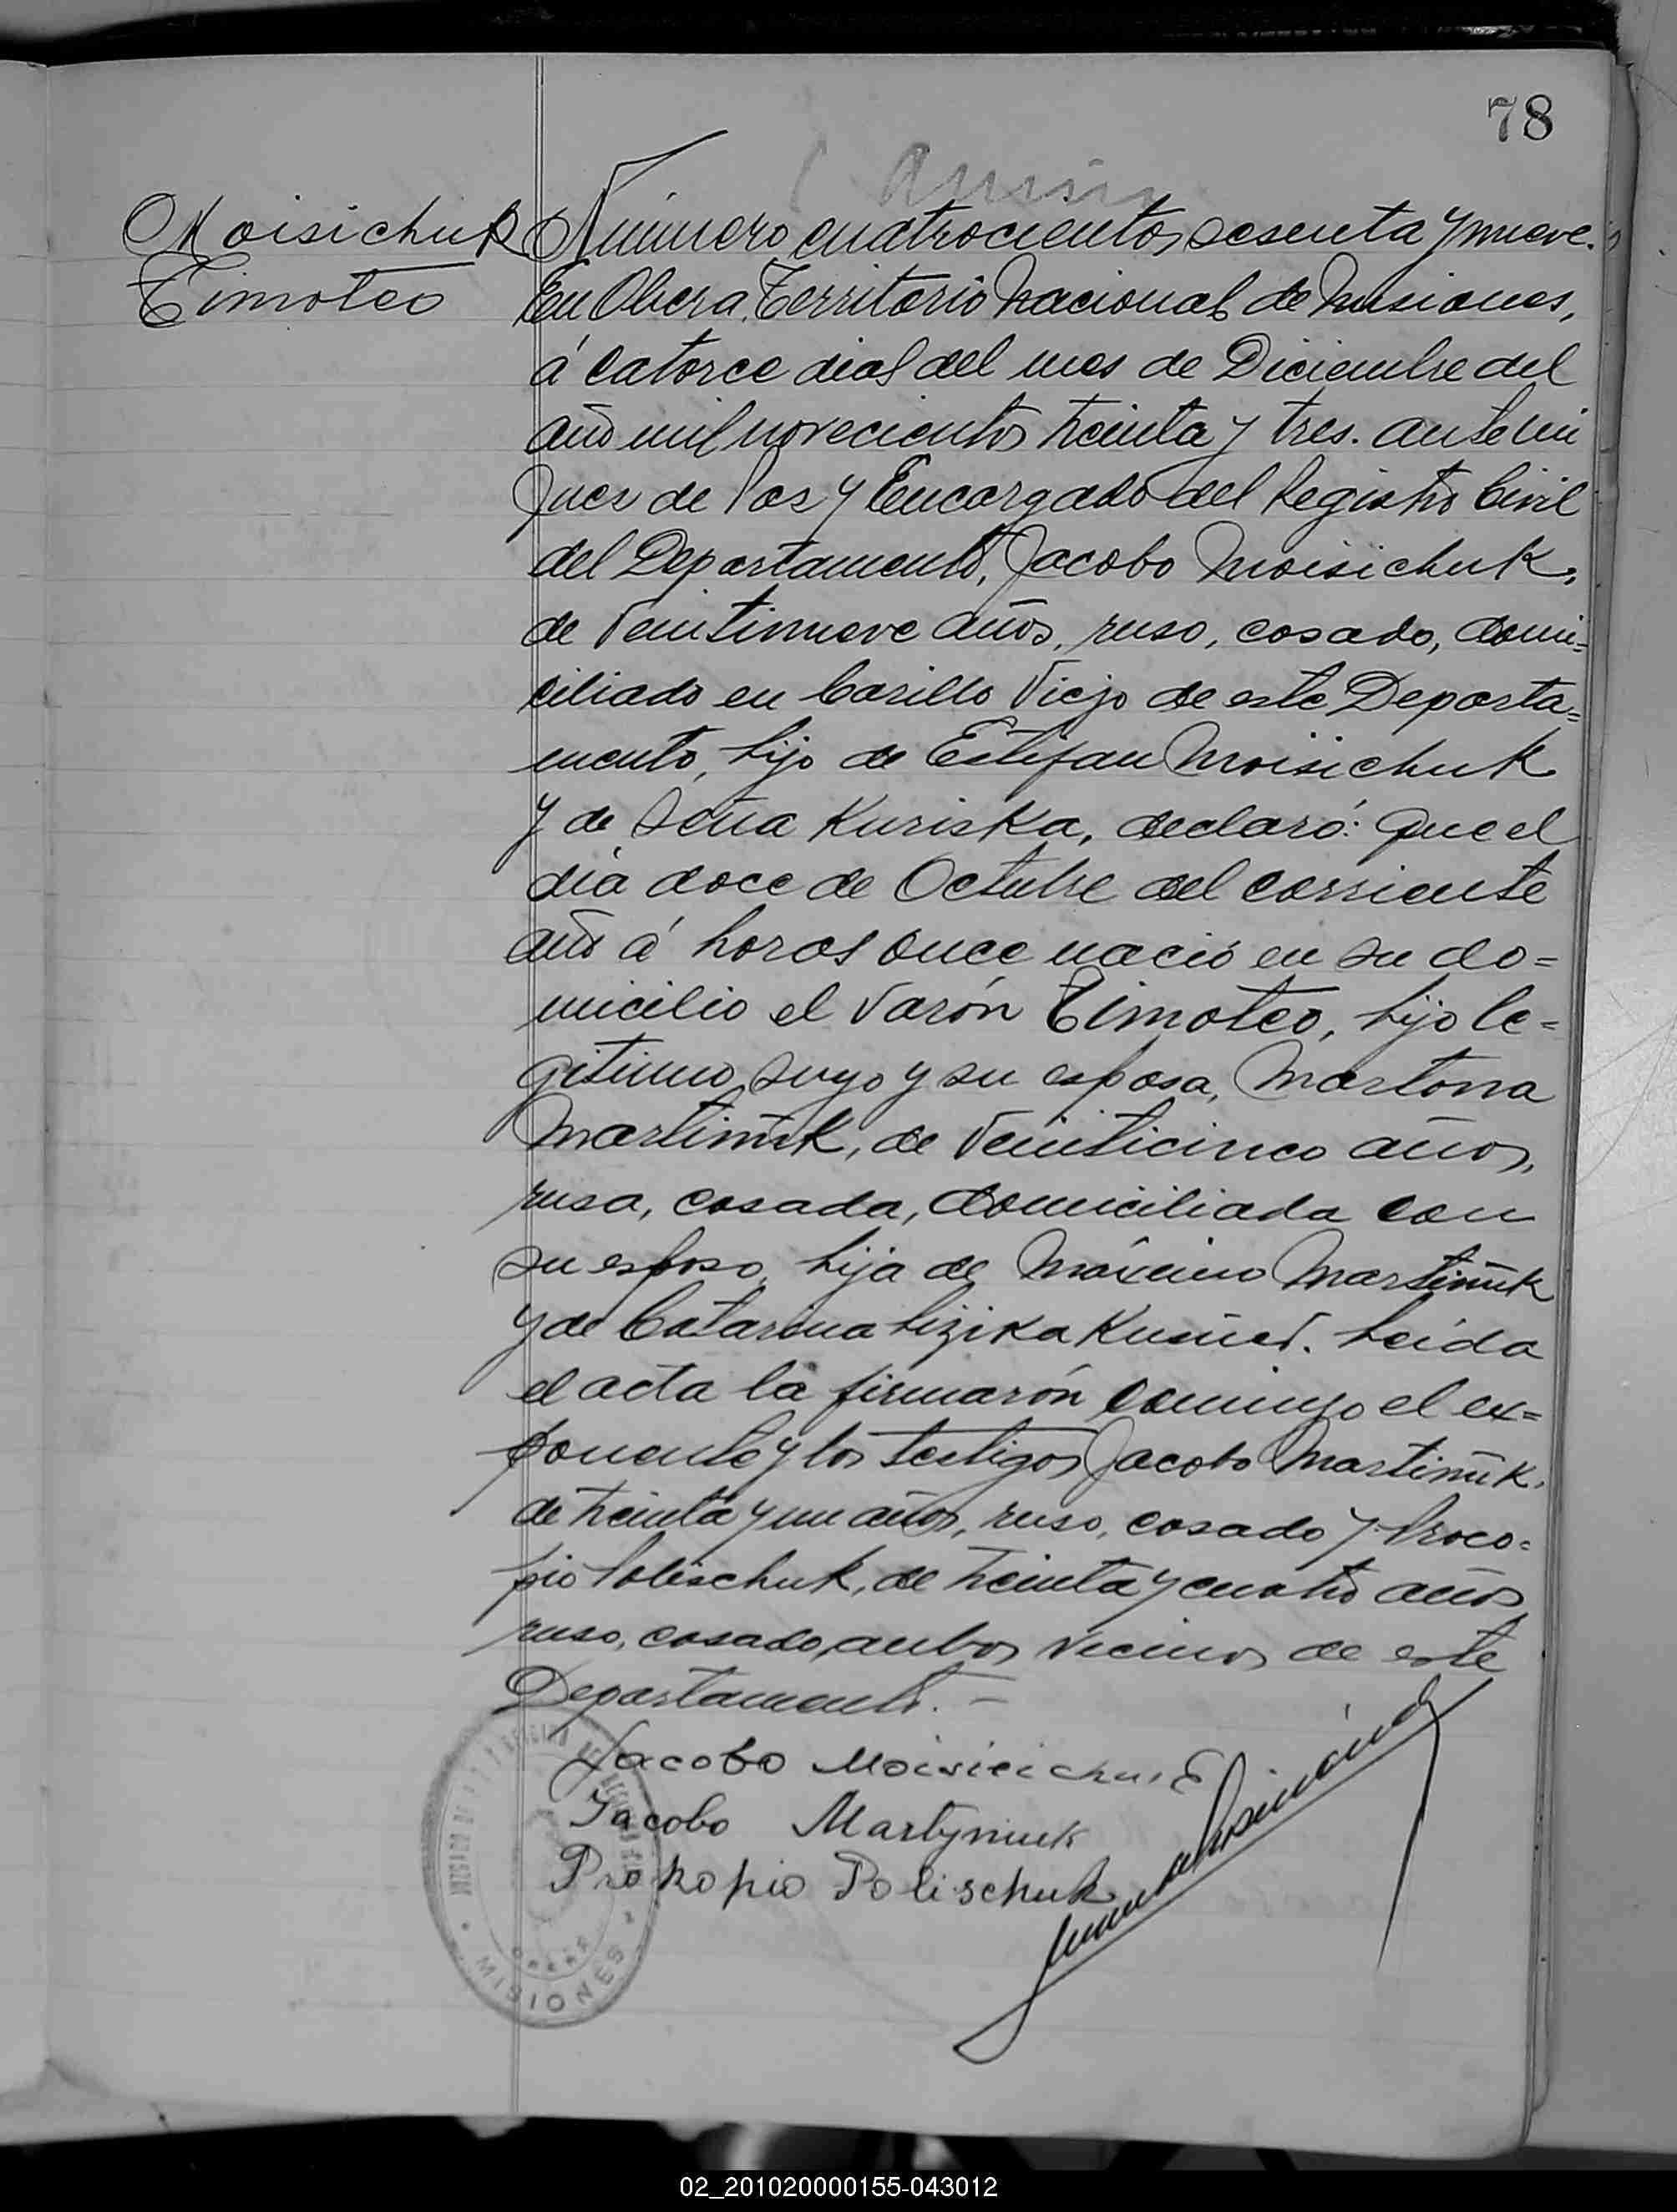 78
Moisichuk
Timoteo
Número cuatrocientos sesenta y nueve.
En Oberá, Territorio Nacional de Misiones,
á catorce dias del mes de Diciembre del
año mil novecientos treinta y tres. ante mi
Juez de Paz y Encargado del Registro Civil
del Departamento, Jacobo Moisichuk,
de veintinueve años, ruso, casado, domi=
ciliado en Carillo Viejo de este Departa=
mento, hijo de Estefan Moisichuk
y de Seña Kuriska, declaró: Que el
dia doce de Octubre del corriente
año á horas once nació en su do=
micilio el varón Timoteo, hijo le=
gitimo suyo y su esposa, Martona
Martiñuk, de veinticinco años,
rusa, casada, domiciliada con
su esposo, hija de Máximo Martiñuk
y de Catarina Lizika . Leida
el acta la firmarón conmigo el ex=
ponente y los testigos Jacobo Martiñuk,
de treinta y un años, ruso, casado y Proco=
pio Polischuk, de treinta y cuatro años
ruso, casado, ambos vecinos de este
Departamento. —
Jacobo
Jacobo Martyniuk
Prokopio Polischuk
MISIONES
02_201020000155-043012